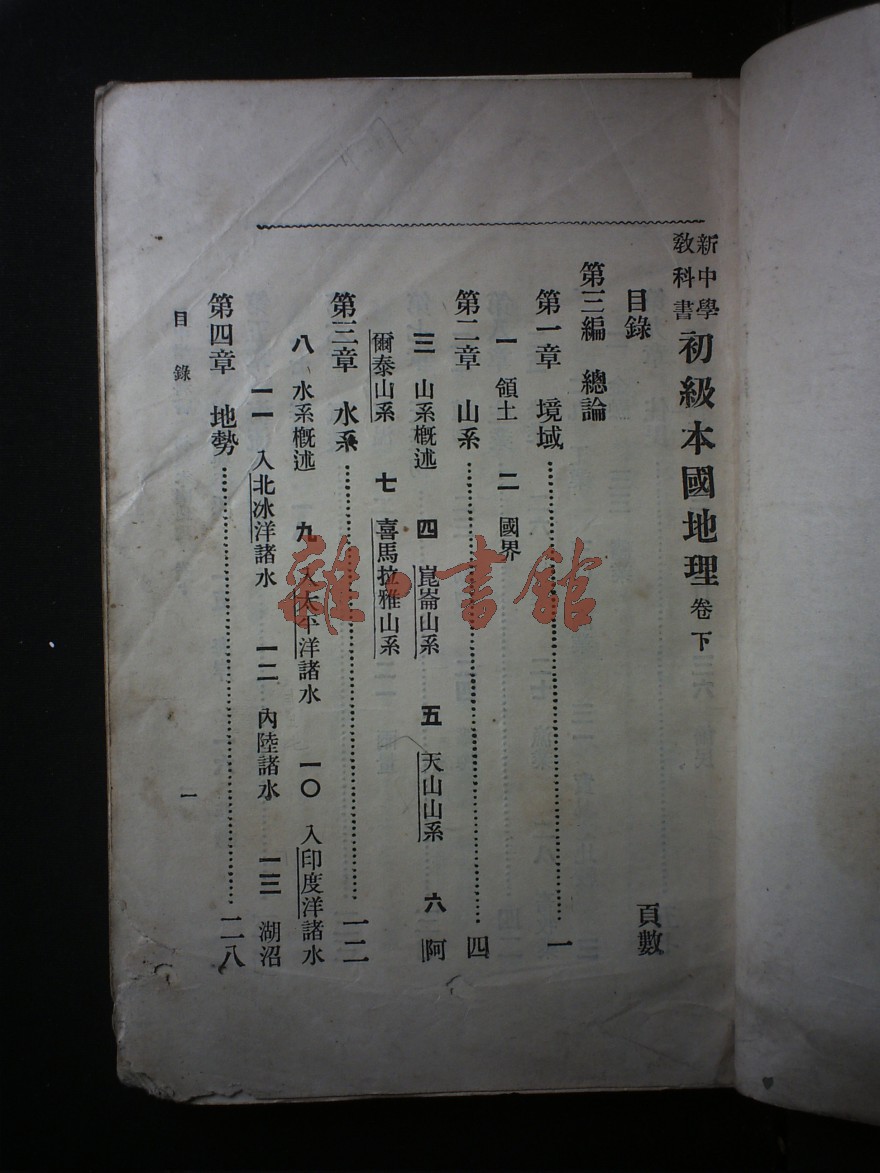 新中學
教科書
初級本國地理 卷下
目錄 頁數
第三編 總論
第一章 境域………一
一 領土 二 國界
第二章 山系………四
三 山系概述 四 崑崙山系 五 天山山系 六 阿
爾泰山系 七 喜馬拉雅山系
第三章 水系………一二
八 水系概述 九 入太平洋諸水 一〇 入印度洋諸水
一一 入北冰洋諸水 一二 內陸諸水 一三 湖沼
第四章 地勢………二八
目錄 一
雜·書館